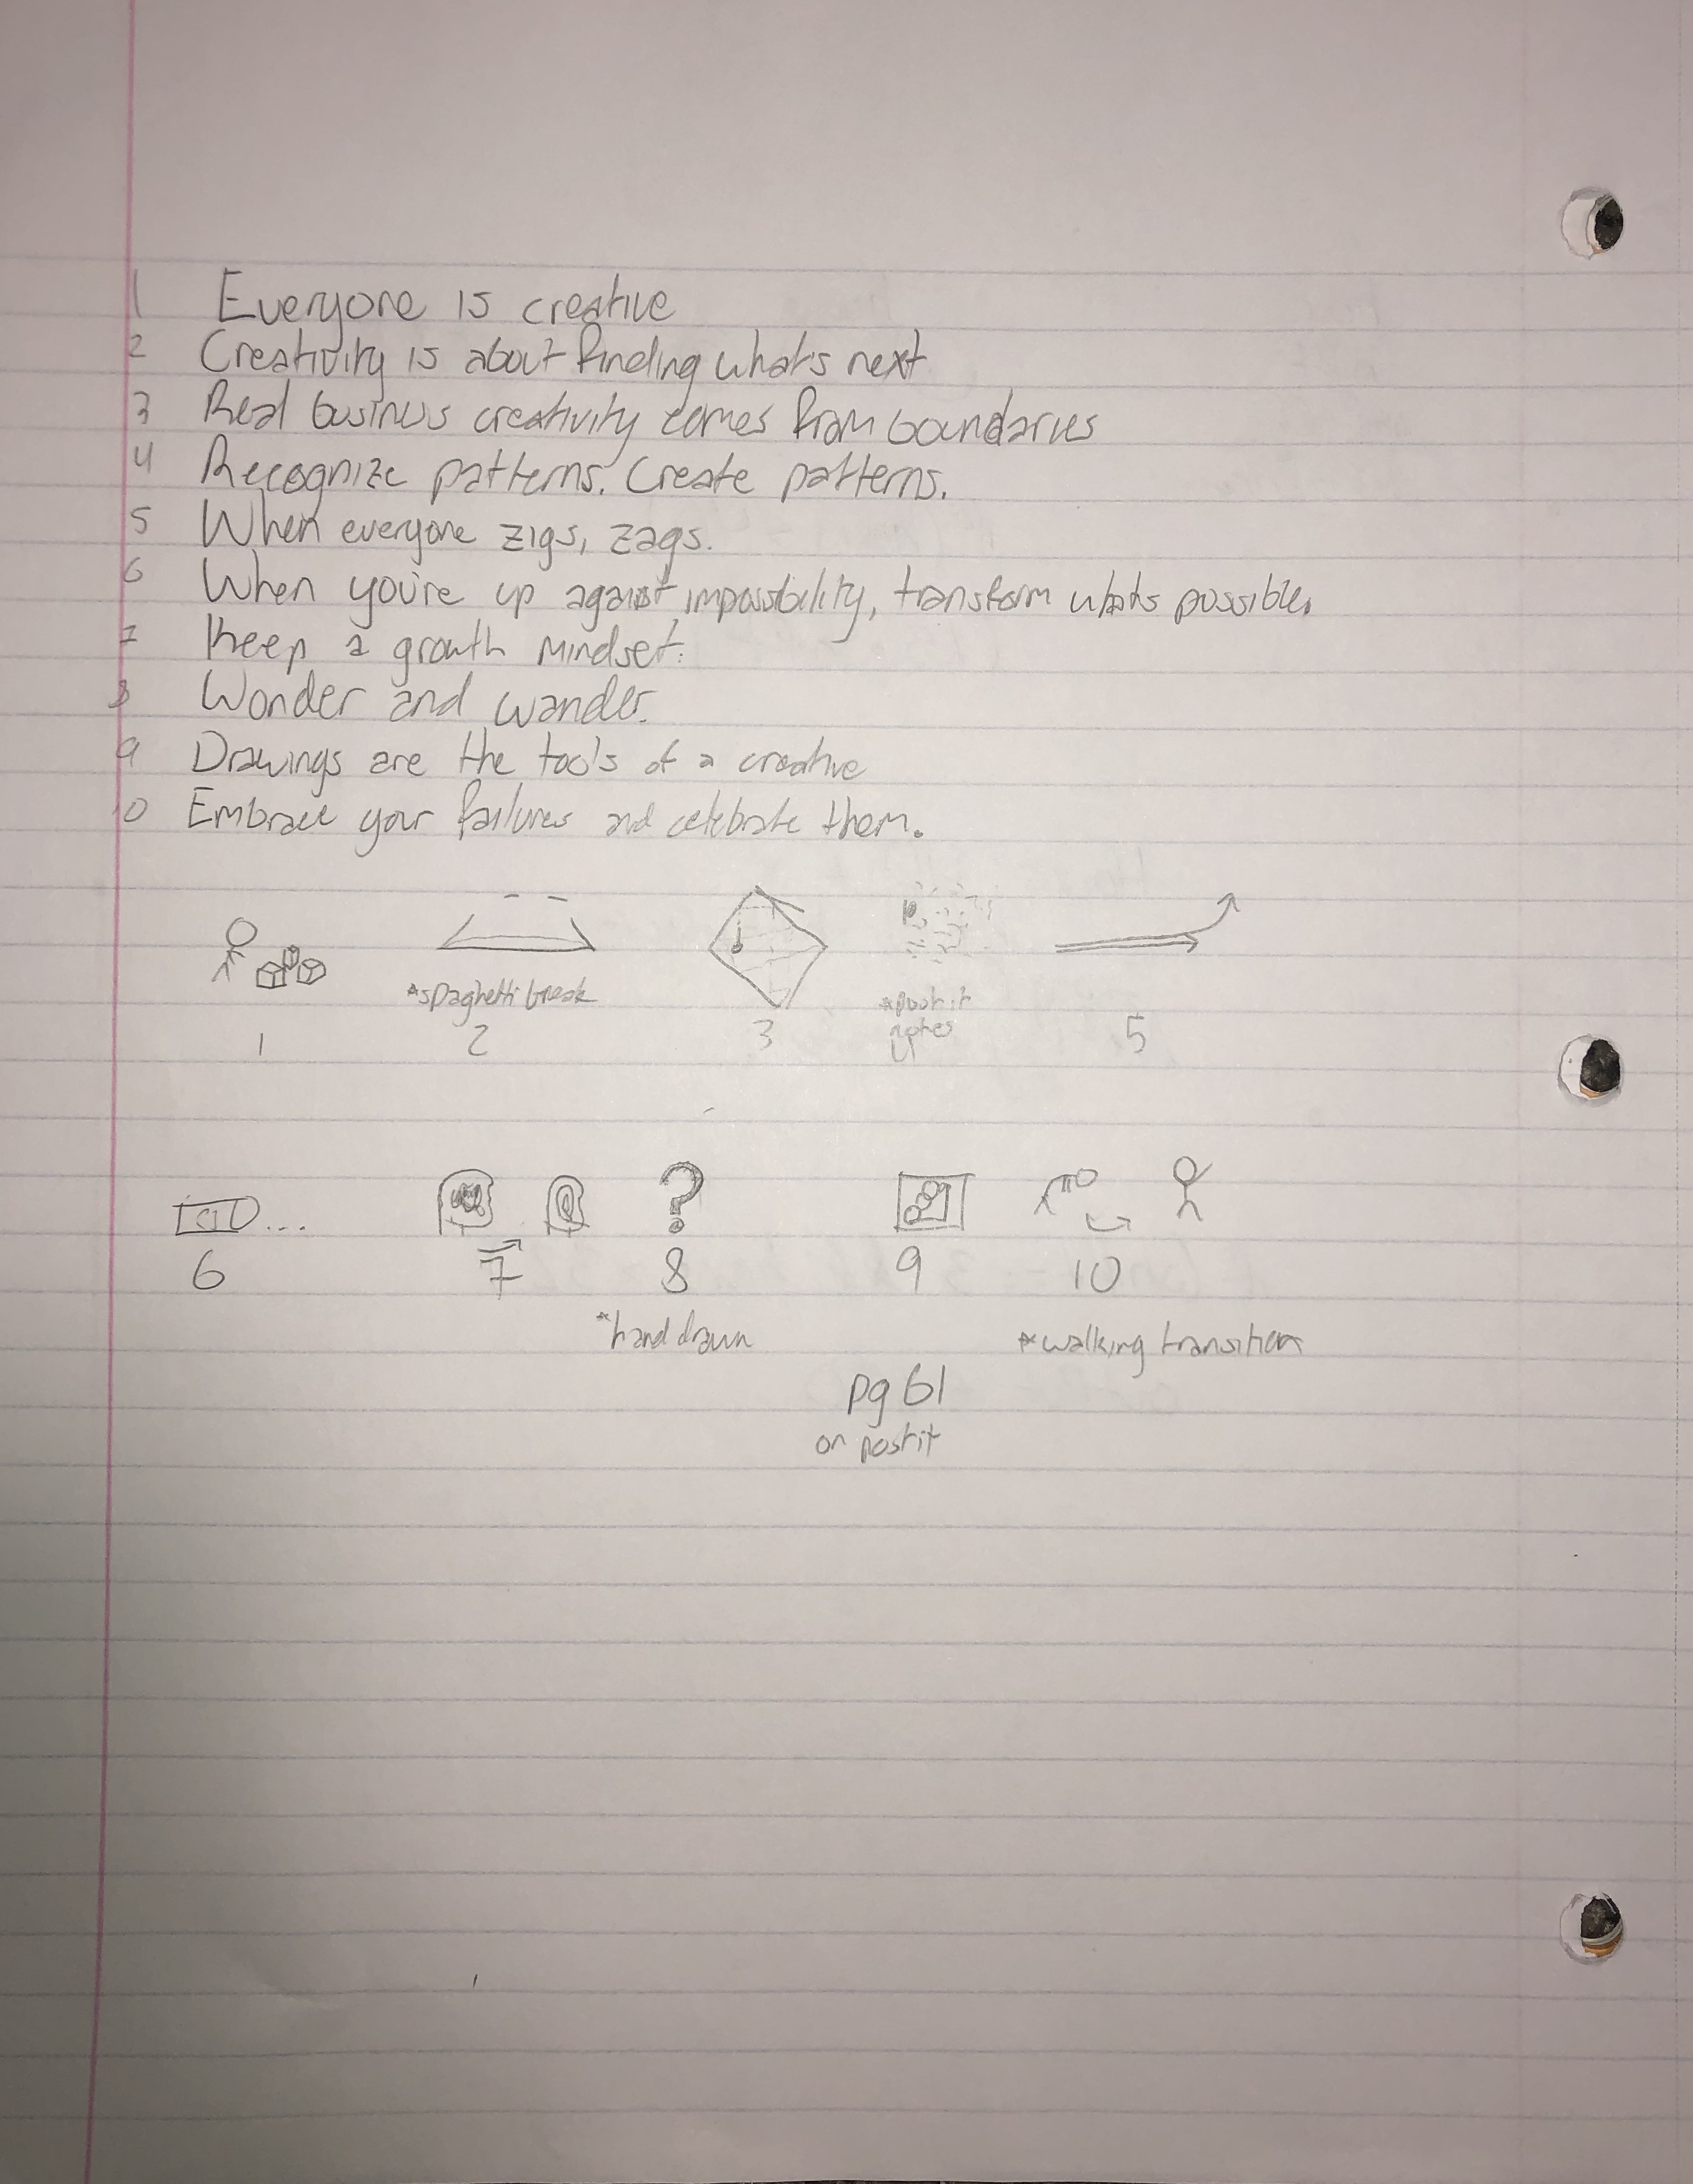 1 Everyone is creative
2 Creativity is about finding what's next
3 Real business creativity comes from boundaries
4 Recognize patterns. Create patterns.
5 When everyone zigs, zags.
6 When you're up against impossibility, transform whats possible.
7 Keep a growth mindset.
8 Wonder and wander.
9 Drawings are the tools of a creative
10 Embrace your failures and celebrate them.
*spaghetti break
*post it
notes
1 2 3 4 5
?
6 7 8 9 10
*hand drawn *walking transition
pg 61
on postit